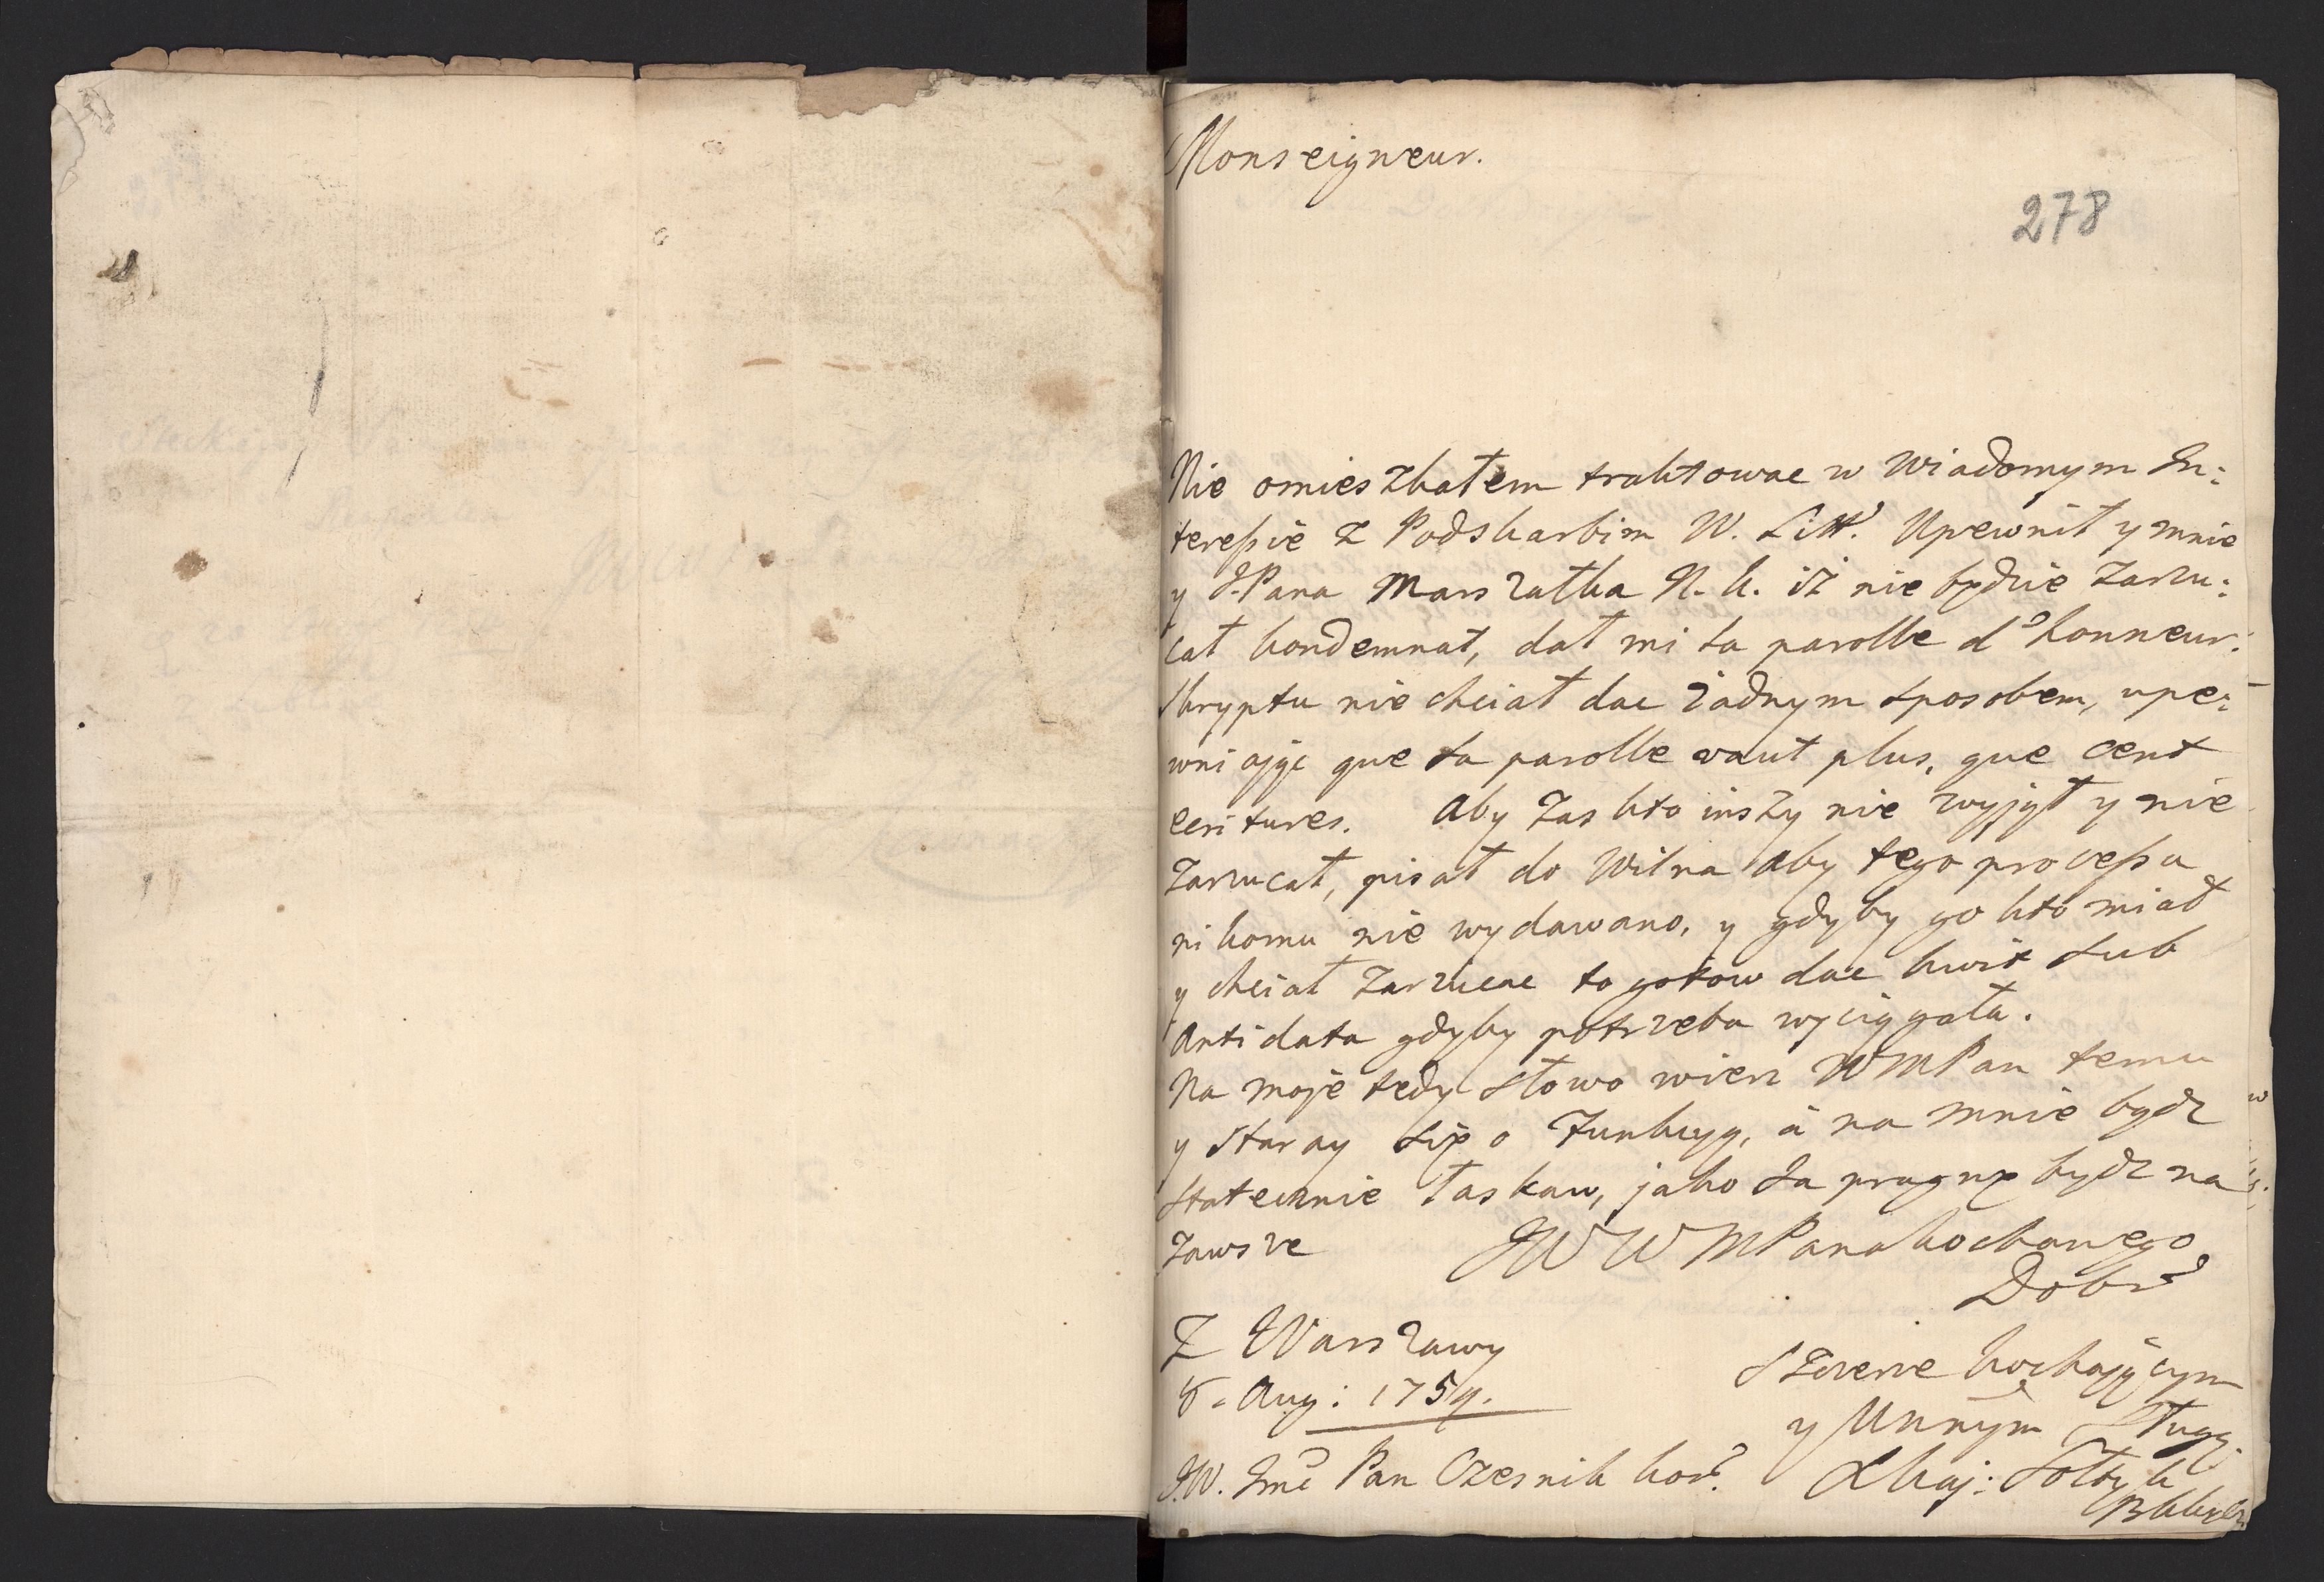 Monseigneur.
278
Nie omieszkałem traktowac w wiadomym In:
teressie z Podskarbim W. Litt. Upewnił y mnie
y J. Pana Marszałka N. K. iż nie będzie zarzu:
cał kondemnat, dał mi sa parolle d'honneur.
Skryptu nie chciał dac żadnym sposobem, upe:
wniając que sa parolle vaut plus, que cent
ecritures. Aby zas kto inszy nie wyjął y nie
zarzucał, pisał do Wilna aby tego processu
nikomu nie wydawano, y gdyby go kto miał
y chciał zarzucac to gotow dac kwit sub
Antidata gdyby potrzeba wyciągała.
Na moje tedy słowo wierz WMPan temu
y staray się o funkcyą, a na mnie bądz
statecznie łaskaw, jako Ja pragnę bydz na
zawsze JW WMPana kochanego
Dobr
Z Warszawy
6. Aug: 1754.
Szczerze kochającym
y Unniym Sługą
J.W. Jmć Pan Czesnik kor.
Kkaj: Sołtyk